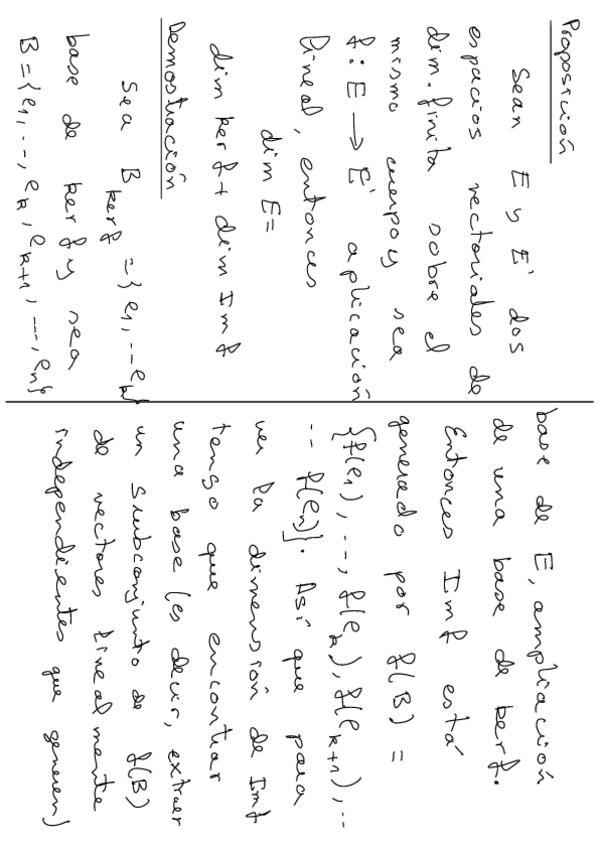 Proposición
Sean E y E' dos
espacios vectoriales de
dim. finita sobre el
mismo cuerpo y sea
f: E → E' aplicación
lineal, entonces
dim E =
dim Ker f + dim Im f
Demostración
Sea B_{Ker f} = {e_1, -- e_k}
base de Ker f y sea
B = {e_1, --, e_k, e_{k+1}, --, e_n}
base de E, ampliación
de una base de Ker f.
Entonces Im f está
generado por f(B) =
{f(e_1), --, f(e_k), f(e_{k+1}), --
-- f(e_n)}. Así que para
ver la dimensión de Im f
tengo que encontrar
una base (es decir, extraer
un subconjunto de f(B)
de vectores linealmente
independientes que generen)